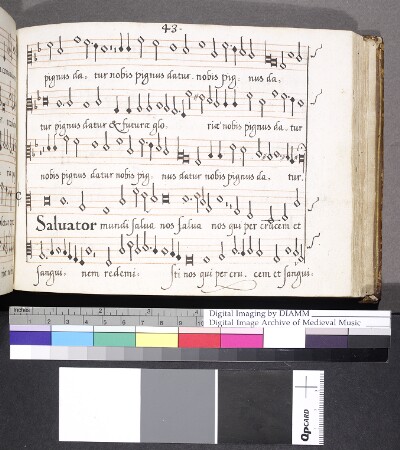 43.
pignus da. tur nobis pignus datur. nobis pig. nus da.
tur pignus datur & futuræ glo. riæ nobis pignus da. tur
nobis pignus datur nobis pig. nus datur nobis pignus da. tur.
Saluator mundi salua nos salua nos qui per crucem et
sangui. nem redemi. sti nos qui per cru. cem et sangui.
inches 1 2 3
Digital Imaging by DIAMM
Digital Image Archive of Medieval Music
cm 1 2 3 4 5 6 7 8 9 10
QPCARD